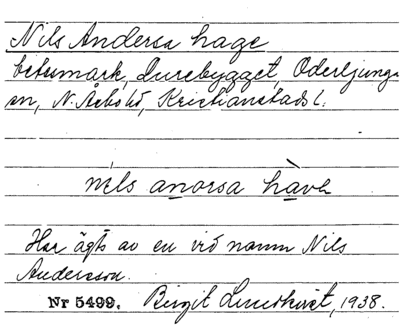 Nils Andersa hage
betesmark, Durebygget, Oderljunga
sn, N. Åsbo hd, Kristianstads l.
nils anorsa hàvh
Har ägts av en vid namn Nils
Andersson.
Nr 5499. Birgit Lundkvist, 1938.